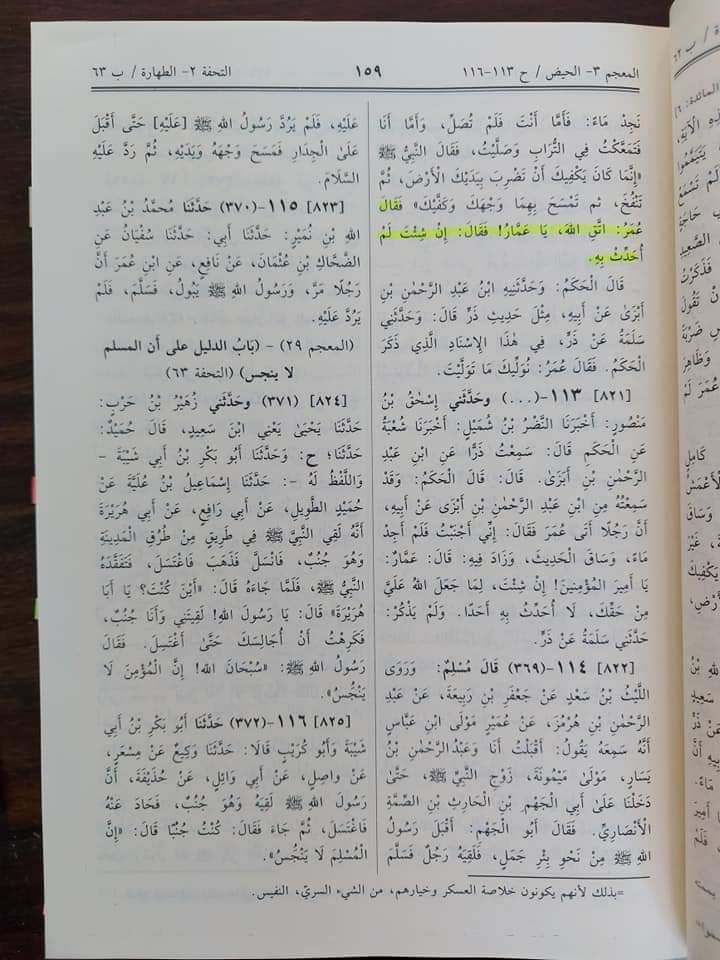 المعجم ٣- الحيض / ح ١١٣-١١٦
١٥٩
التحفة ٢- الطهارة / ب ٦٣
نَجِدْ مَاءً: فَأَمَّا أَنْتَ فَلَمْ تُصَلِّ، وَأَمَّا أَنَا
فَتَمَعَّكْتُ فِي التُّرَابِ وَصَلَّيْتُ، فَقَالَ النَّبِيُّ ﷺ
«إِنَّمَا كَانَ يَكْفِيكَ أَنْ تَضْرِبَ بِيَدَيْكَ الْأَرْضَ، ثُمَّ
تَنْفُخَ، ثم تَمْسَحَ بِهِمَا وَجْهَكَ وَكَفَّيْكَ» فَقَالَ
عُمَرُ: اتَّقِ اللهَ، يَا عَمَّارُ! فَقَالَ: إِنْ شِئْتَ لَمْ
أُحَدِّثْ بِهِ.
قَالَ الْحَكَمُ: وَحَدَّثَنِيهِ ابْنُ عَبْدِ الرَّحْمٰنِ بْنِ
أَبْزَىٰ عَنْ أَبِيهِ، مِثْلَ حَدِيثِ ذَرٍّ قَالَ: وَحَدَّثَنِي
سَلَمَةُ عَنْ ذَرٍّ، فِي هٰذَا الْإِسْنَادِ الَّذِي ذَكَرَ
الْحَكَمُ. فَقَالَ عُمَرُ: نُوَلِّيكَ مَا تَوَلَّيْتَ.
[٨٢١] ١١٣-(...) وحَدَّثَنِي إِسْحٰقُ بْنُ
مَنْصُورٍ: أَخْبَرَنَا النَّضْرُ بْنُ شُمَيْلٍ: أَخْبَرَنَا شُعْبَةُ
عَنِ الْحَكَمِ قَالَ: سَمِعْتُ ذَرًّا عَنِ ابْنِ عَبْدِ
الرَّحْمٰنِ بْنِ أَبْزَىٰ. قَالَ: قَالَ الْحَكَمُ: وَقَدْ
سَمِعْتُهُ مِنِ ابْنِ عَبْدِ الرَّحْمٰنِ بْنِ أَبْزَىٰ عَنْ أَبِيهِ،
أَنَّ رَجُلًا أَتَى عُمَرَ فَقَالَ: إِنِّي أَجْنَبْتُ فَلَمْ أَجِدْ
مَاءً، وَسَاقَ الْحَدِيثَ، وَزَادَ فِيهِ: قَالَ عَمَّارٌ:
يَا أَمِيرَ الْمُؤْمِنِينَ! إِنْ شِئْتَ، لِمَا جَعَلَ اللهُ عَلَيَّ
مِنْ حَقِّكَ، لَا أُحَدِّثُ بِهِ أَحَدًا. وَلَمْ يَذْكُرْ:
حَدَّثَنِي سَلَمَةُ عَنْ ذَرٍّ.
[٨٢٢] ١١٤-(٣٦٩) قَالَ مُسْلِمٌ: وَرَوَى
اللَّيْثُ بْنُ سَعْدٍ عَنْ جَعْفَرِ بْنِ رَبِيعَةَ، عَنْ عَبْدِ
الرَّحْمٰنِ بْنِ هُرْمُزَ، عَنْ عُمَيْرٍ مَوْلَى ابْنِ عَبَّاسٍ
أَنَّهُ سَمِعَهُ يَقُولُ: أَقْبَلْتُ أَنَا وَعَبْدُ الرَّحْمٰنِ بْنُ
يَسَارٍ، مَوْلَى مَيْمُونَةَ، زَوْجِ النَّبِيِّ ﷺ، حَتَّىٰ
دَخَلْنَا عَلَىٰ أَبِي الْجَهْمِ بْنِ الْحَارِثِ بْنِ الصِّمَّةِ
الْأَنْصَارِيِّ. فَقَالَ أَبُو الْجَهْمِ: أَقْبَلَ رَسُولُ
اللهِ ﷺ مِنْ نَحْوِ بِئْرِ جَمَلٍ، فَلَقِيَهُ رَجُلٌ فَسَلَّمَ
عَلَيْهِ، فَلَمْ يَرُدَّ رَسُولُ اللهِ ﷺ [عَلَيْهِ] حَتَّى أَقْبَلَ
عَلَىٰ الْجِدَارِ فَمَسَحَ وَجْهَهُ وَيَدَيْهِ، ثُمَّ رَدَّ عَلَيْهِ
السَّلَامَ.
[٨٢٣] ١١٥-(٣٧٠) حَدَّثَنَا مُحَمَّدُ بْنُ عَبْدِ
اللهِ بْنِ نُمَيْرٍ: حَدَّثَنَا أَبِي: حَدَّثَنَا سُفْيَانُ عَنِ
الضَّحَّاكِ بْنِ عُثْمَانَ، عَنْ نَافِعٍ، عَنِ ابْنِ عُمَرَ أَنَّ
رَجُلًا مَرَّ، وَرَسُولُ اللهِ ﷺ يَبُولُ، فَسَلَّمَ، فَلَمْ
يَرُدَّ عَلَيْهِ.
(المعجم ٢٩) - (بَابُ الدليل على أن المسلم
لا ينجس) (التحفة ٦٣)
[٨٢٤] (٣٧١) وحَدَّثَنِي زُهَيْرُ بْنُ حَرْبٍ:
حَدَّثَنَا يَحْيَىٰ يَعْنِي ابْنَ سَعِيدٍ، قَالَ حُمَيْدٌ:
حَدَّثَنَا؛ ح: وَحَدَّثَنَا أَبُو بَكْرِ بْنُ أَبِي شَيْبَةَ -
وَاللَّفْظُ لَهُ -: حَدَّثَنَا إِسْمَاعِيلُ بْنُ عُلَيَّةَ عَنْ
حُمَيْدٍ الطَّوِيلِ، عَنْ أَبِي رَافِعٍ، عَنْ أَبِي هُرَيْرَةَ
أَنَّهُ لَقِيَ النَّبِيَّ ﷺ فِي طَرِيقٍ مِنْ طُرُقِ الْمَدِينَةِ
وَهُوَ جُنُبٌ، فَانْسَلَّ فَذَهَبَ فَاغْتَسَلَ، فَتَفَقَّدَهُ
النَّبِيُّ ﷺ، فَلَمَّا جَاءَهُ قَالَ: «أَيْنَ كُنْتَ؟ يَا أَبَا
هُرَيْرَةَ» قَالَ: يَا رَسُولَ اللهِ! لَقِيتَنِي وَأَنَا جُنُبٌ،
فَكَرِهْتُ أَنْ أُجَالِسَكَ حَتَّىٰ أَغْتَسِلَ. فَقَالَ
رَسُولُ اللهِ ﷺ: «سُبْحَانَ اللهِ! إِنَّ الْمُؤْمِنَ لَا
يَنْجُسُ».
[٨٢٥] ١١٦-(٣٧٢) حَدَّثَنَا أَبُو بَكْرِ بْنُ أَبِي
شَيْبَةَ وَأَبُو كُرَيْبٍ قَالَا: حَدَّثَنَا وَكِيعٌ عَنْ مِسْعَرٍ،
عَنْ وَاصِلٍ، عَنْ أَبِي وَائِلٍ، عَنْ حُذَيْفَةَ، أَنَّ
رَسُولَ اللهِ ﷺ لَقِيَهُ وَهُوَ جُنُبٌ، فَحَادَ عَنْهُ
فَاغْتَسَلَ، ثُمَّ جَاءَ فَقَالَ: كُنْتُ جُنُبًا قَالَ: «إِنَّ
الْمُسْلِمَ لَا يَنْجُسُ».
=بذلك لأنهم يكونون خلاصة العسكر وخيارهم، من الشيء السريّ، النفيس.